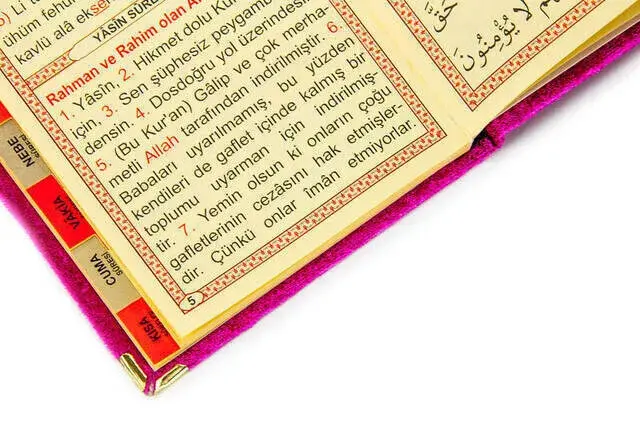 Li
ühüm
kavlü alâ
YÂSİN
Rahman ve Rahim olan
1. Yâsîn. 2. Hikmet dolu
için, 3. Sen şüphesiz
densin. 4. Dosdoğru yol üzerindesin.
5. (Bu Kur'an) Gâlip ve çok
metli Allah tarafından indirilmiştir. 6.
Babaları uyarılmamış, bu yüzden
kendileri de gaflet içinde kalmış bir
toplumu uyarman için indirilmiş-
tir. 7. Yemin olsun ki onların çoğu
gafletlerinin cezâsını hak etmişler-
dir. Çünkü onlar îmân etmiyorlar.
5
حَقَّ
لَا يُؤْمِنُونَ
NEBE
SÛRESİ
VÂKIA
CUMA
SÛRESİ
KISA